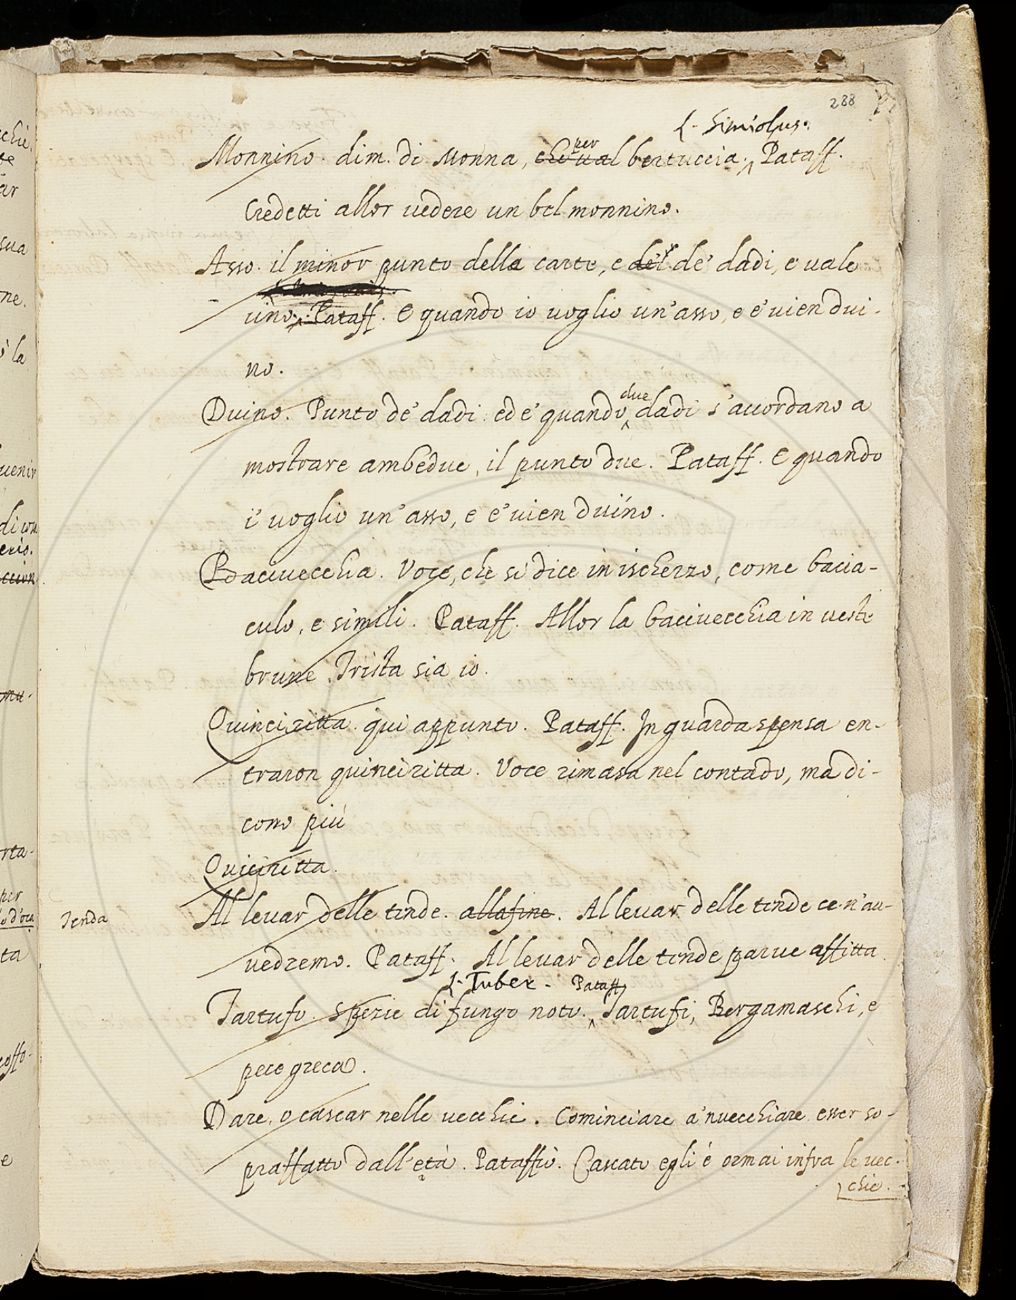 288
L. Simiolus.
Monnino. dim. di Monna, che val per bertuccia. Pataff.
Credetti allor vedere un bel monnino.
Asso. il minor punto delle carte, e del de' dadi, e vale
uino. Pataff. E quando io voglio un'asso, e e' vien dui-
no.
Duino. Punto de' dadi ed e' quando due dadi s'accordano a
mostrare ambedue, il punto due. Pataff. E quando
i' voglio un'asso, e e' vien duíno.
Bacivecchia. Voce, che si dice in ischerzo, come bacia-
culo, e simili. Pataff. Allor la bacivecchia in veste
brune. Trista sia io.
Quinciritta. qui appunto. Pataff. In guardaspensa en-
traron quinciritta. Voce rimasa nel contado, ma di-
cono più
Quiciritta.
Tenda
Al levar delle tende. allafine. Al levar delle tende ce n'av-
vedremo. Pataff. Al levar delle tende parve affitta
L. Tuber. Pataff
Tartufo. Spezie di fungo noto. Tartufi, Bergamaschi, e
pece greca.
Dare, o cascar nelle vecchie. Cominciare a'nvecchiare esser so-
praffatto dall'età. Pataffio. Cascato egli é ormai infra le vec-
chie.